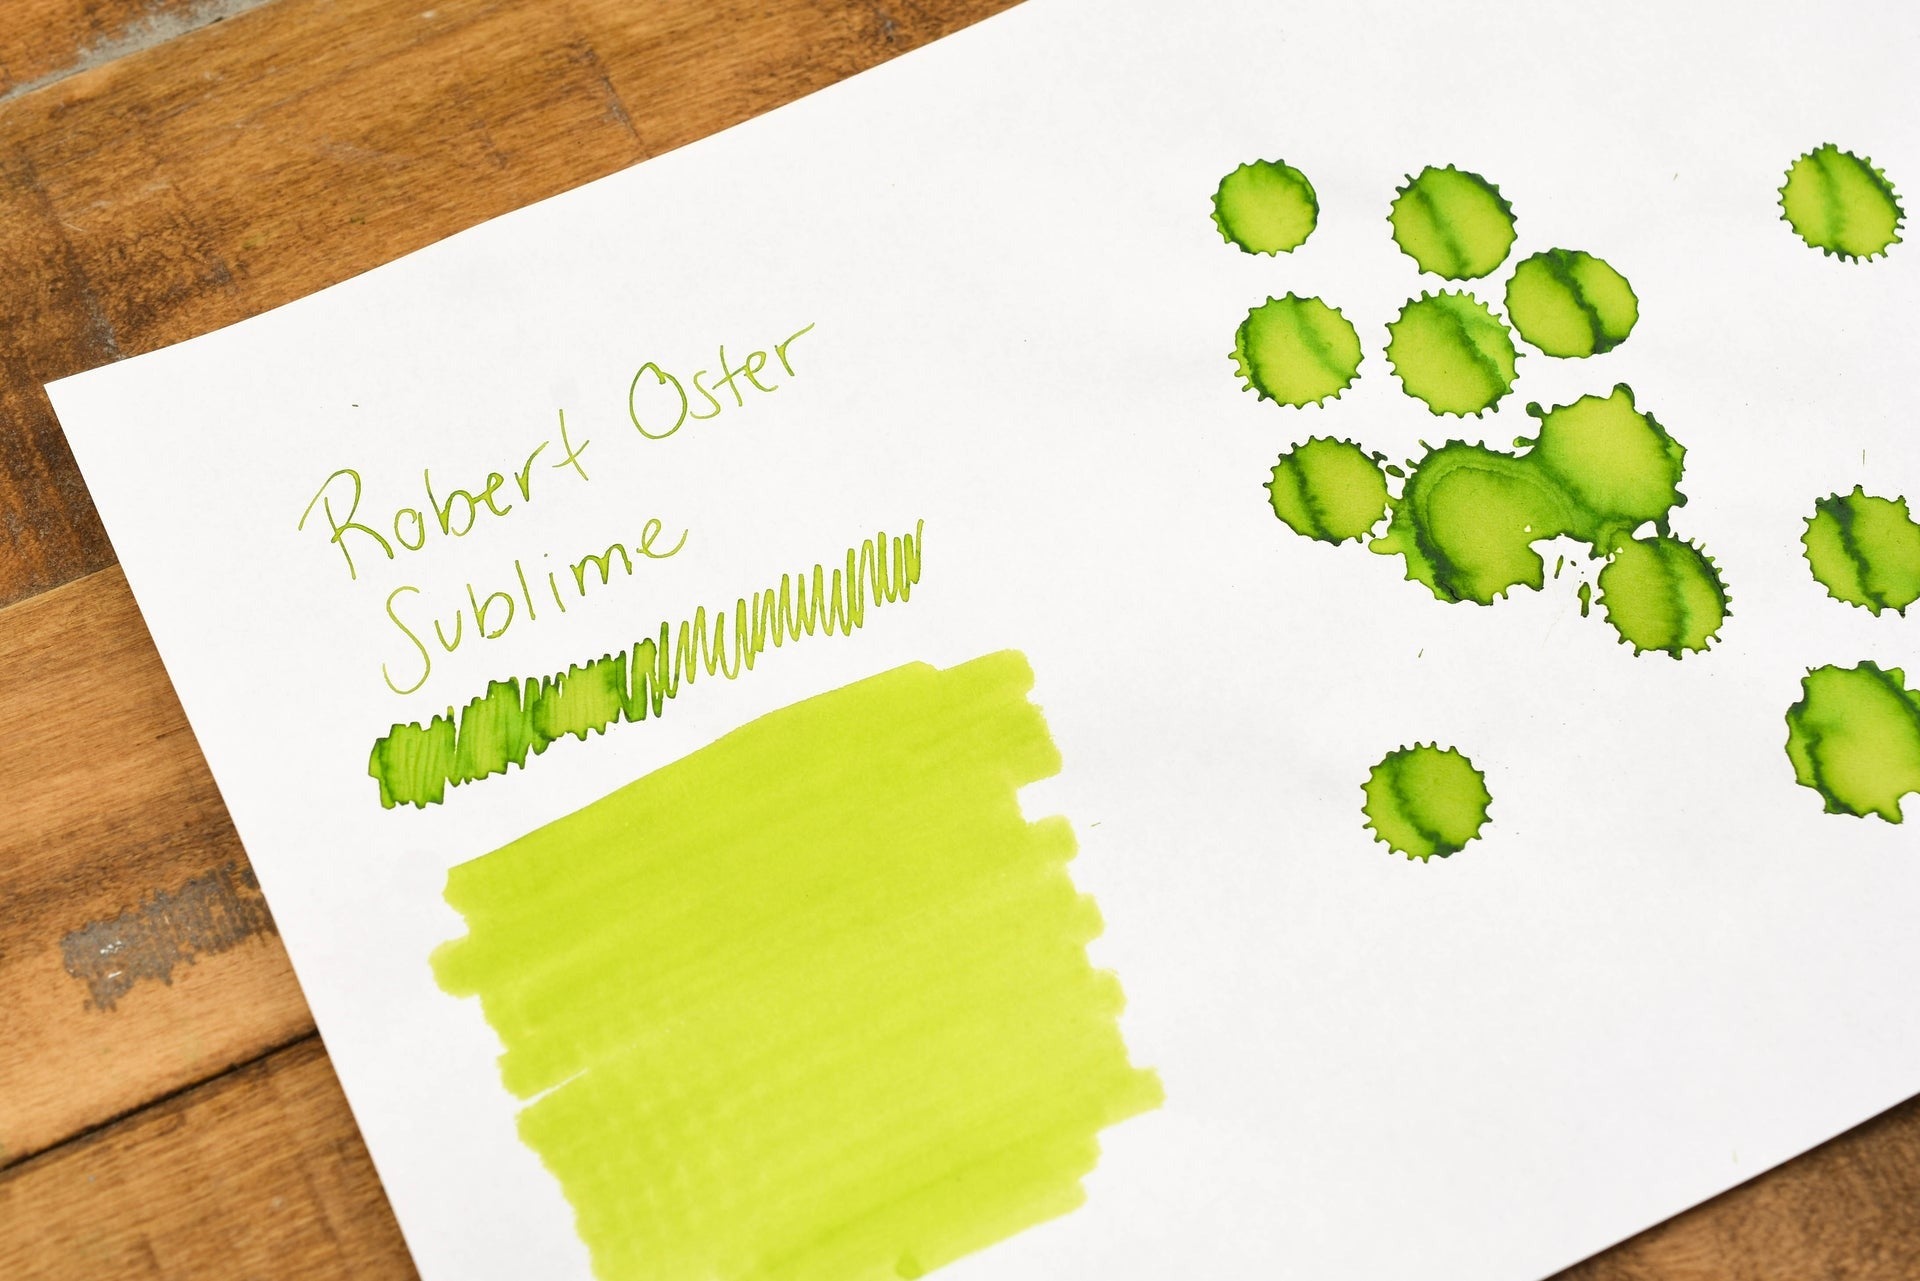 Robert Oster
Sublime